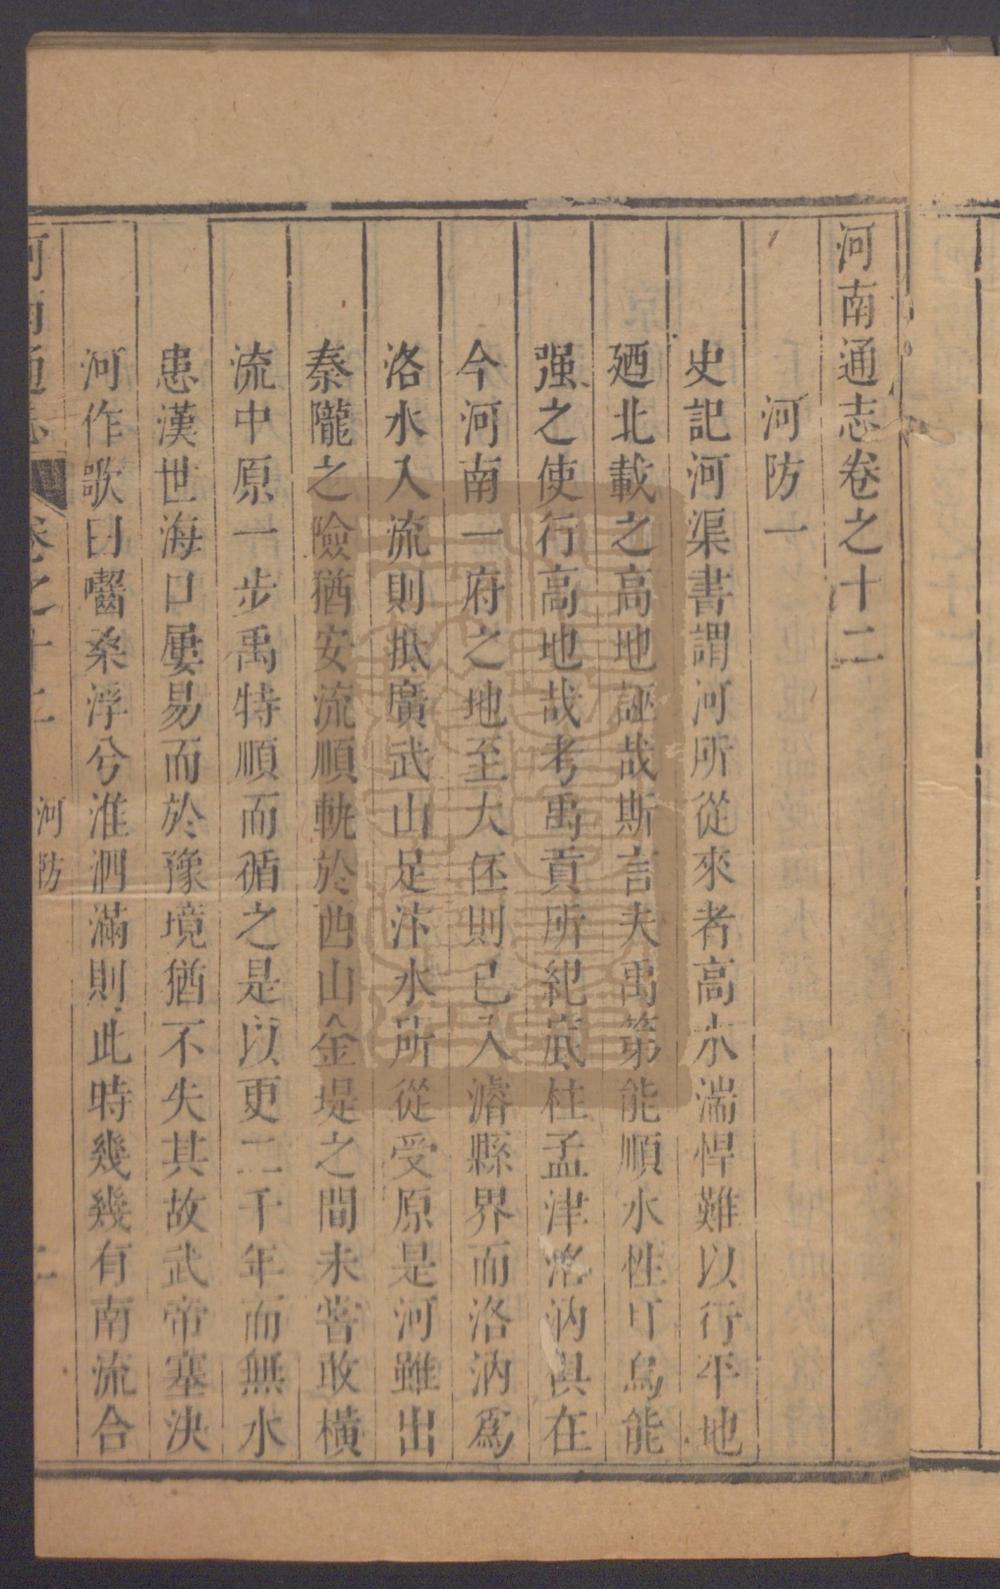 河南通志卷之十二
河防一
史記河渠書謂河所從來者高水湍悍難以行平地
廼北載之高地誣哉斯言夫禹第能順水性耳烏能
强之使行高地哉考禹貢所紀底柱孟津洛汭俱在
今河南一府之地至大伾則已入濬縣界而洛汭爲
洛水入流則抵廣武山足汴水所從受原是河雖出
秦隴之險猶安流順軌於西山金堤之間未嘗敢橫
流中原一步禹特順而循之是以更二千年而無水
患漢世海口屢易而於豫境猶不失其故武帝塞決
河作歌曰齧桑浮兮淮泗滿則此時幾幾有南流合
河南通志 卷之十二 河防